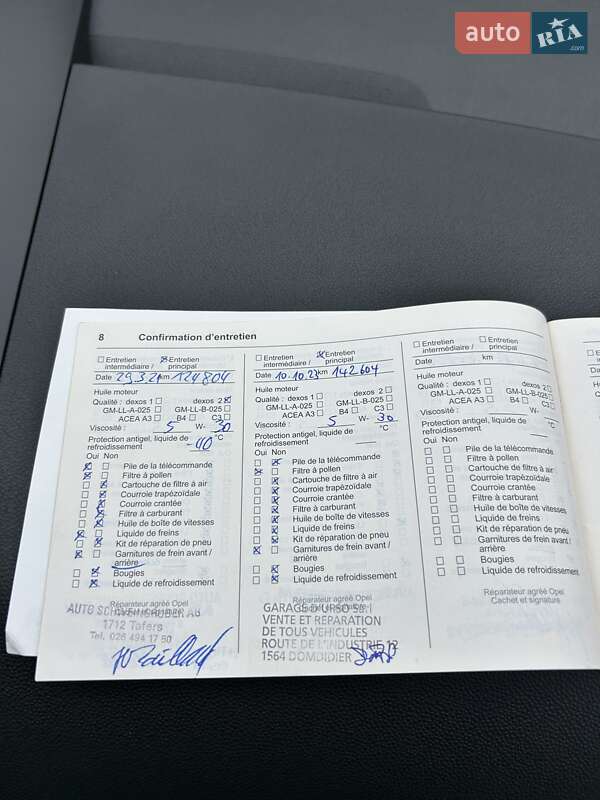 auto RIA.com
8 Confirmation d'entretien
Entretien intermédiaire / Entretien principal
Date 29.3.21 km 124804
Huile moteur
Qualité : dexos 1 dexos 2
GM-LL-A-025 GM-LL-B-025
ACEA A3 B4 C3
Viscosité : 5 W- 30
Protection antigel, liquide de
refroidissement -40 °C
Oui Non
Pile de la télécommande
Filtre à pollen
Cartouche de filtre à air
Courroie trapézoïdale
Courroie crantée
Filtre à carburant
Huile de boîte de vitesses
Liquide de freins
Kit de réparation de pneu
Garnitures de frein avant /
arrière
Bougies
Liquide de refroidissement
Réparateur agréé Opel
AUTO SCHWEINGRUBER AG
1712 Tafers
Tel. 026 494 17 50
Entretien intermédiaire / Entretien principal
Date 10.10.23 km 142604
Huile moteur
Qualité : dexos 1 dexos 2
GM-LL-A-025 GM-LL-B-025
ACEA A3 B4 C3
Viscosité : 5 W- 30
Protection antigel, liquide de
refroidissement °C
Oui Non
Pile de la télécommande
Filtre à pollen
Cartouche de filtre à air
Courroie trapézoïdale
Courroie crantée
Filtre à carburant
Huile de boîte de vitesses
Liquide de freins
Kit de réparation de pneu
Garnitures de frein avant /
arrière
Bougies
Liquide de refroidissement
Réparateur agréé Opel
GARAGE D'URSO S.à.r.l
VENTE ET REPARATION
DE TOUS VEHICULES
ROUTE DE L'INDUSTRIE 12
1564 DOMDIDIER
Entretien intermédiaire / Entretien principal
Date km
Huile moteur
Qualité : dexos 1 dexos 2
GM-LL-A-025 GM-LL-B-025
ACEA A3 B4 C3
Viscosité : W-
Protection antigel, liquide de
refroidissement °C
Oui Non
Pile de la télécommande
Filtre à pollen
Cartouche de filtre à air
Courroie trapézoïdale
Courroie crantée
Filtre à carburant
Huile de boîte de vitesses
Liquide de freins
Kit de réparation de pneu
Garnitures de frein avant /
arrière
Bougies
Liquide de refroidissement
Réparateur agréé Opel
Cachet et signature